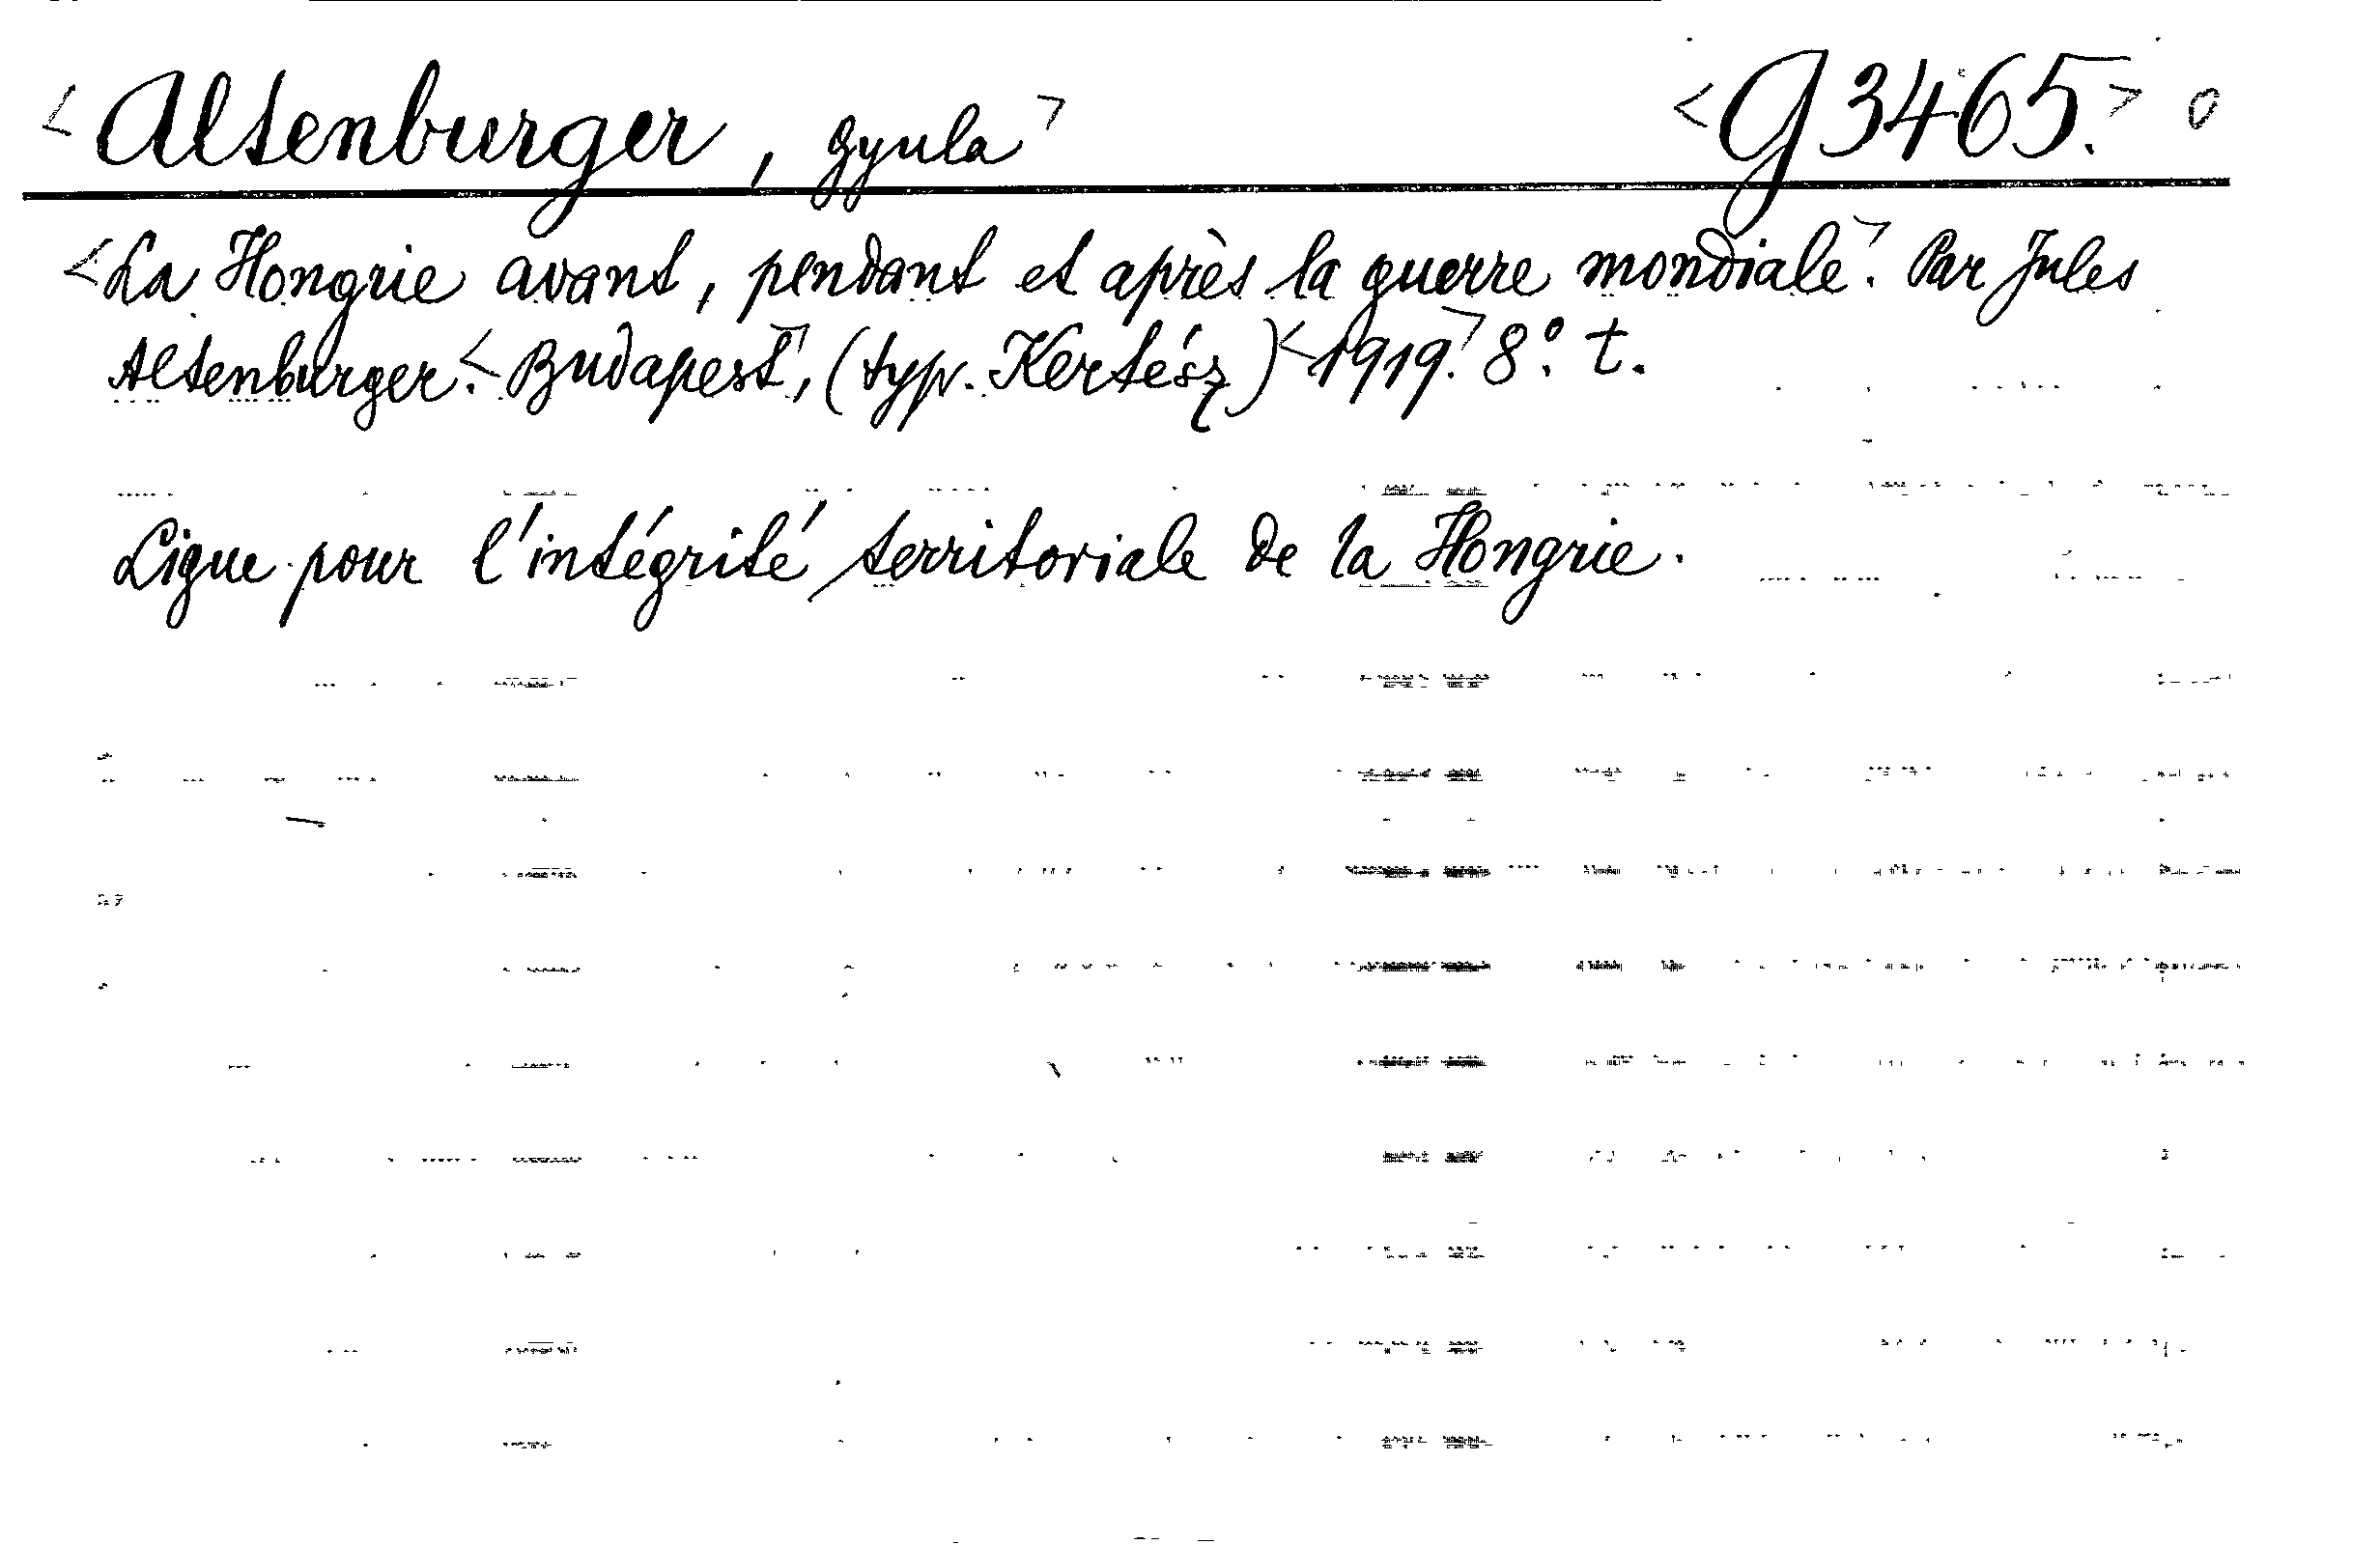 <Altenburger, Gyula> <G 3465.> 0
<La Hongrie avant, pendant et après la guerre mondiale>. Par Jules
Altenburger. <Budapest>, (typ. Kertész) <1919.> 8°. t.
Ligue pour l'intégrité territoriale de la Hongrie.